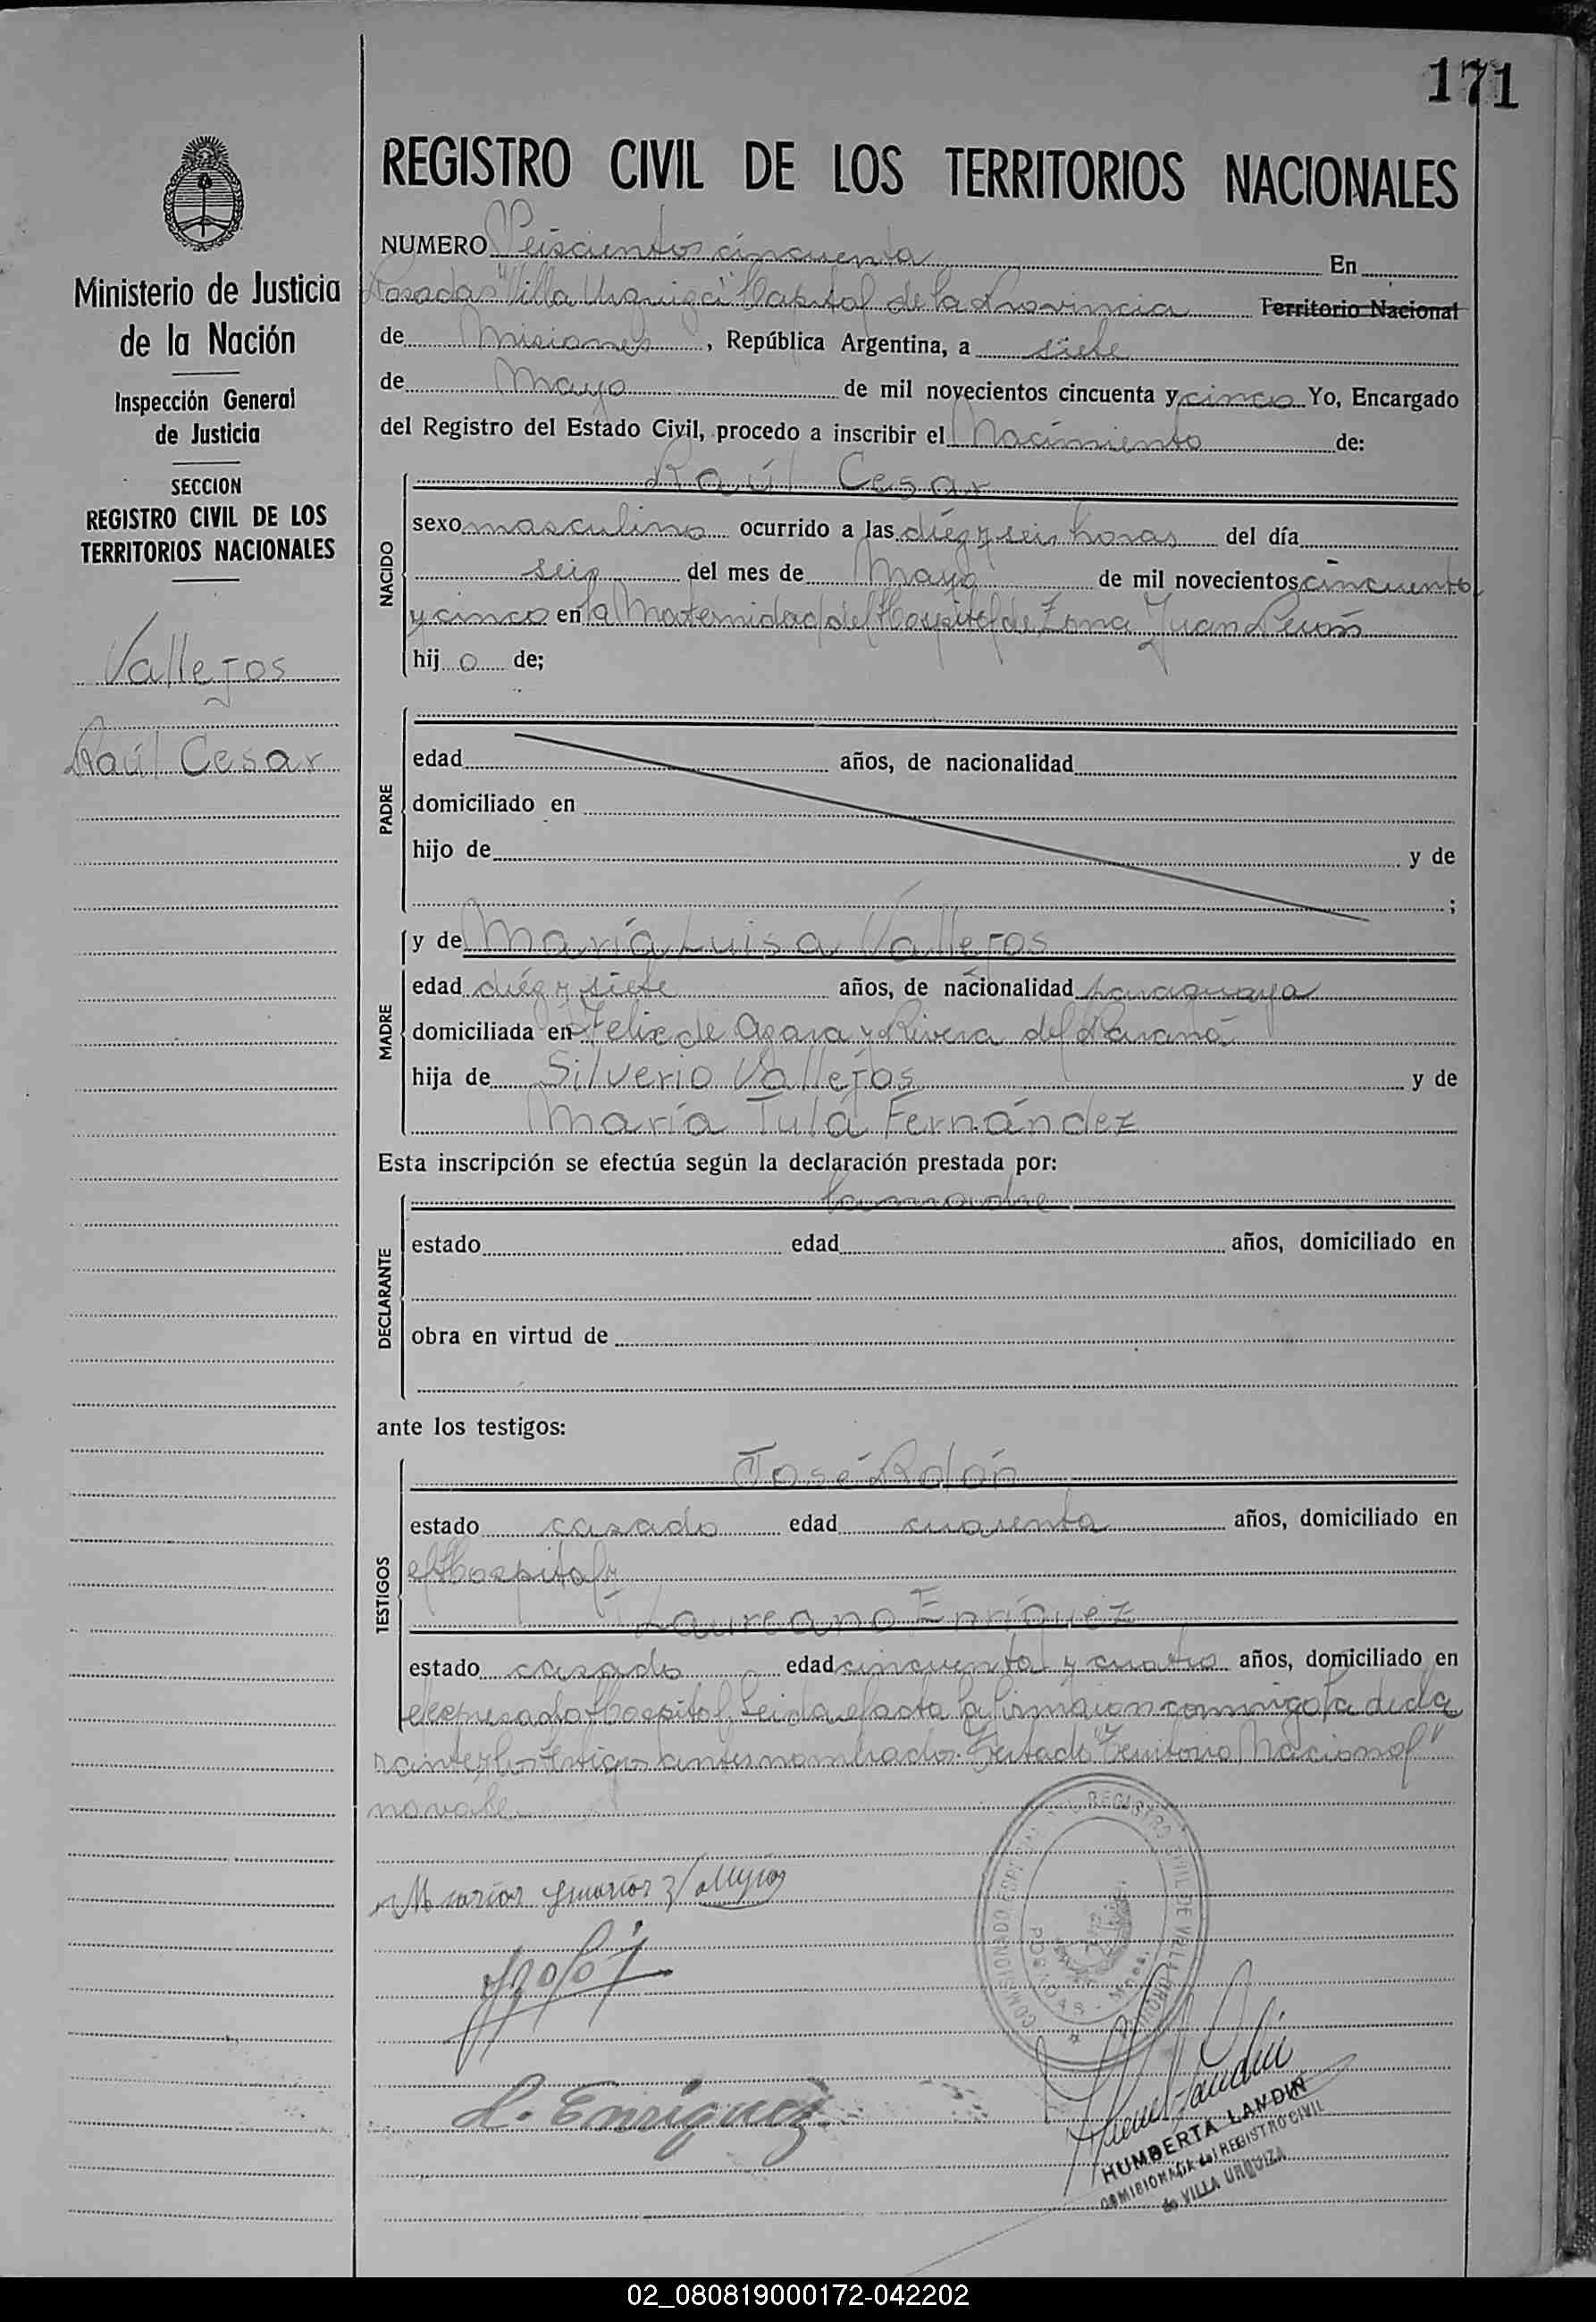 171
REGISTRO CIVIL DE LOS TERRITORIOS NACIONALES
Ministerio de Justicia
de la Nación
Inspección General
de Justicia
SECCION
REGISTRO CIVIL DE LOS
TERRITORIOS NACIONALES
Vallejos
Raúl Cesar
NUMERO Seiscientos cincuenta En
Posadas "Villa Urquiza" Capital de la Provincia Territorio Nacional
de Misiones, República Argentina, a siete
de Mayo de mil novecientos cincuenta y cinco Yo, Encargado
del Registro del Estado Civil, procedo a inscribir el Nacimiento de:
NACIDO
Raúl Cesar
sexo masculino ocurrido a las diéz y seis horas del día
seis del mes de Mayo de mil novecientos cincuenta
y cinco en la Maternidad del Hospital de Zona Juan Perón
hij o de;
PADRE
edad años, de nacionalidad
domiciliado en
hijo de y de
;
MADRE
y de María Luisa Vallejos
edad diéz y siete años, de nacionalidad paraguaya
domiciliada en Felix de Azara y Rivera del Paraná
hija de Silverio Vallejos y de
María Tulá Fernández
Esta inscripción se efectúa según la declaración prestada por:
DECLARANTE
la madre
estado edad años, domiciliado en
obra en virtud de
ante los testigos:
TESTIGOS
José Rolón
estado casado edad cuarenta años, domiciliado en
el Hospital y
Laureano Enriquez
estado casado edad cincuenta y cuatro años, domiciliado en
el expresado Hospital. Leida el acta la firmaron conmigo la decla
rante y los testigos antes nombrados. Testado "Territorio Nacional"
no vale.
L. Enriquez
COMISIONADO REGISTRO CIVIL DE VILLA URQUIZA
POSADAS - Mnes.
HUMBERTA LANDIN
COMISIONADA del REGISTRO CIVIL
de VILLA URQUIZA
02_080819000172-042202